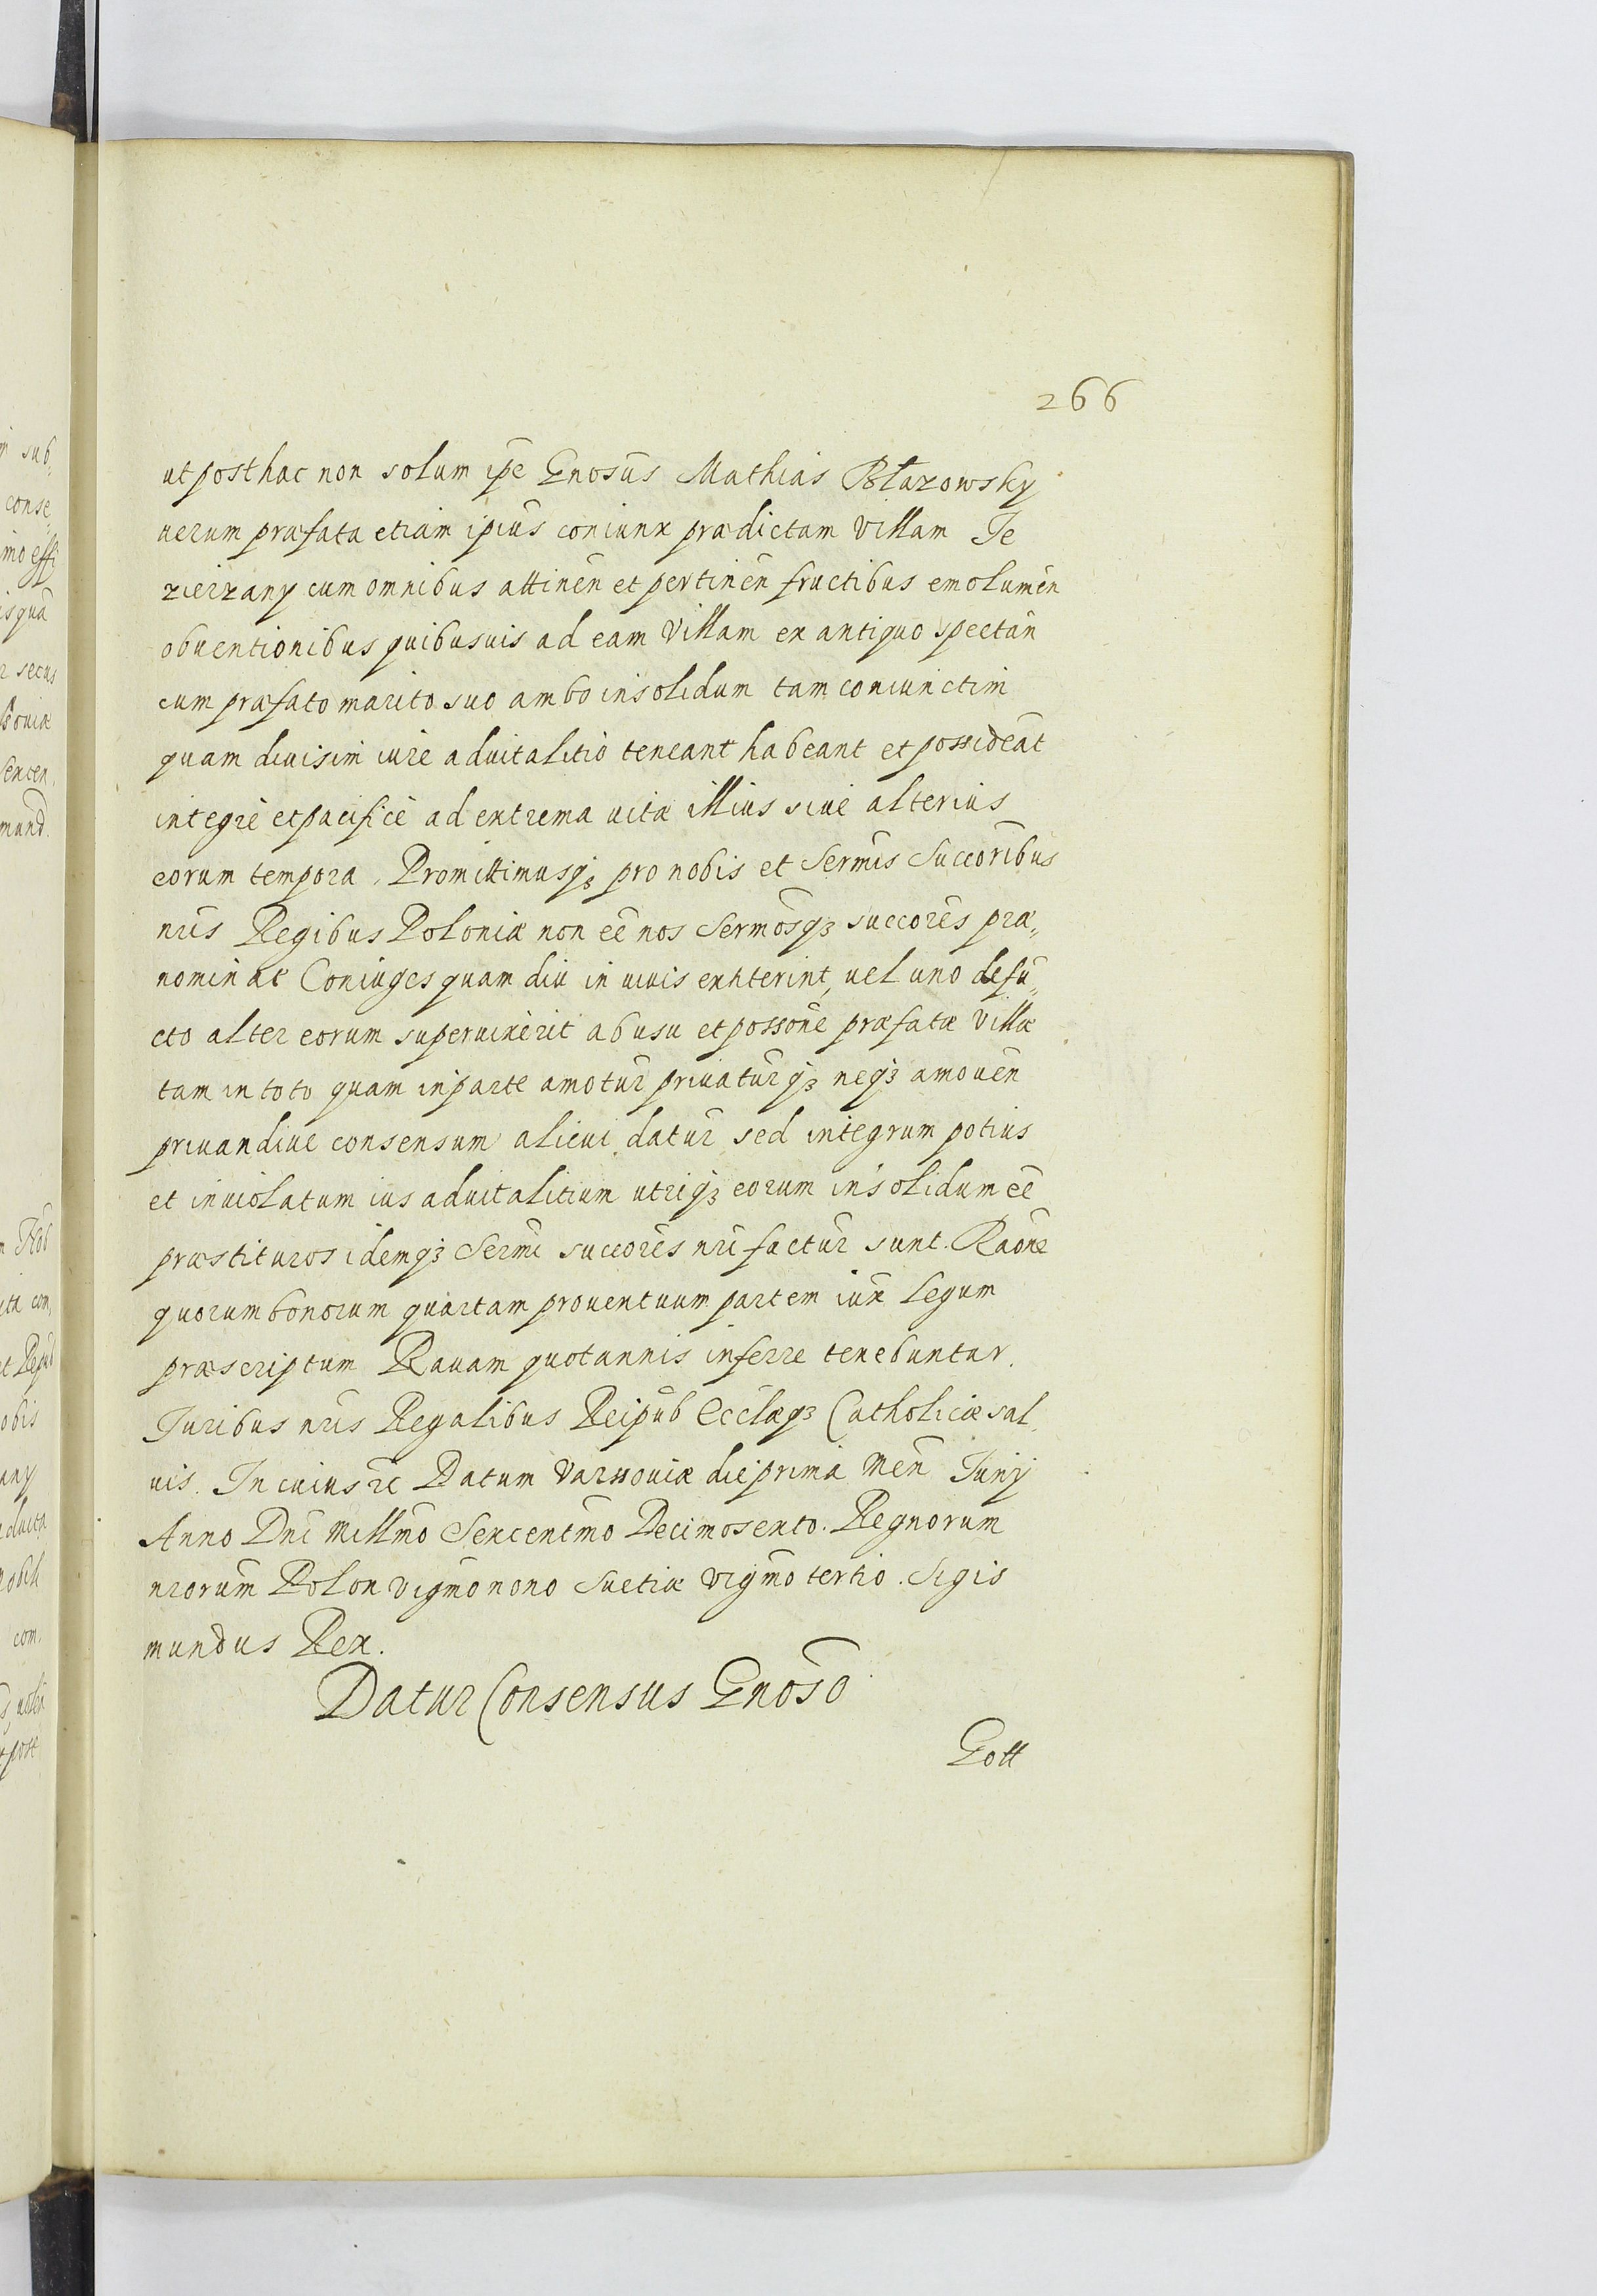 266
ut posthac non solum ip̃e Gnosũs Mathias Błazowsky
uerum præfata etiam ipiũs coniunx prædictam Villam Je
zierzany cum omnibus attineñ et pertineñ fructibus emolumeñ
obuentionibus quibusuis ad eam Villam ex antiquo spectañ
cum præfato marito suo ambo insolidum tam coniunctim
quam diuisim iure aduitalitio teneant habeant et possideãt
integre et pacifice ad extrema uitæ illius siue alterius
eorum tempora. Promittimusqꝫ pro nobis et Sermĩs Succoribũs
nrĩs Regibus Poloniæ non eẽ nos Sermõsqꝫ succorẽs præ„
nominat Coniuges quam diu in uiuis exhterint, uel uno defũ„
cto alter eorum superuixerit ab usu et possonẽ præfatæ Villæ
tam in toto quam in parte amotur̃ priuatur̃qꝫ neqꝫ amoueñ
priuandiue consensum alicui datur̃ sed integrum potius
et inuiolatum ius aduitalitium utriqꝫ eorum insolidum eẽ
præstituros idemqꝫ Sermĩ succorẽs nrĩ factur̃ sunt. Raonẽ
quorum bonorum quartam prouentuum partem iux̃ legum
præscriptum Rauam quotannis inferre tenebuntur.
Juribus nrĩs Regalibus Reipub̃ Ecclæ̃qꝫ Catholicæ sal„
uis. In cuius rẽ Datum Varssouiæ die prima Meñ Junÿ
Anno Dnĩ Millmõ Sexcentmõ Decimosexto. Regnorum
nrorum̃ Polon Vigmõ nono Suetiæ Vigmõ tertio. Sigis
mundus Rex.
Datur Consensus Gnosõ
Gott
sub„
conse„
imo effi
isquã
secus
souiæ
Senten.
mund.
Nob̃
ita con„
et Repub̃
obis
any
aduita
nobili
com.
post